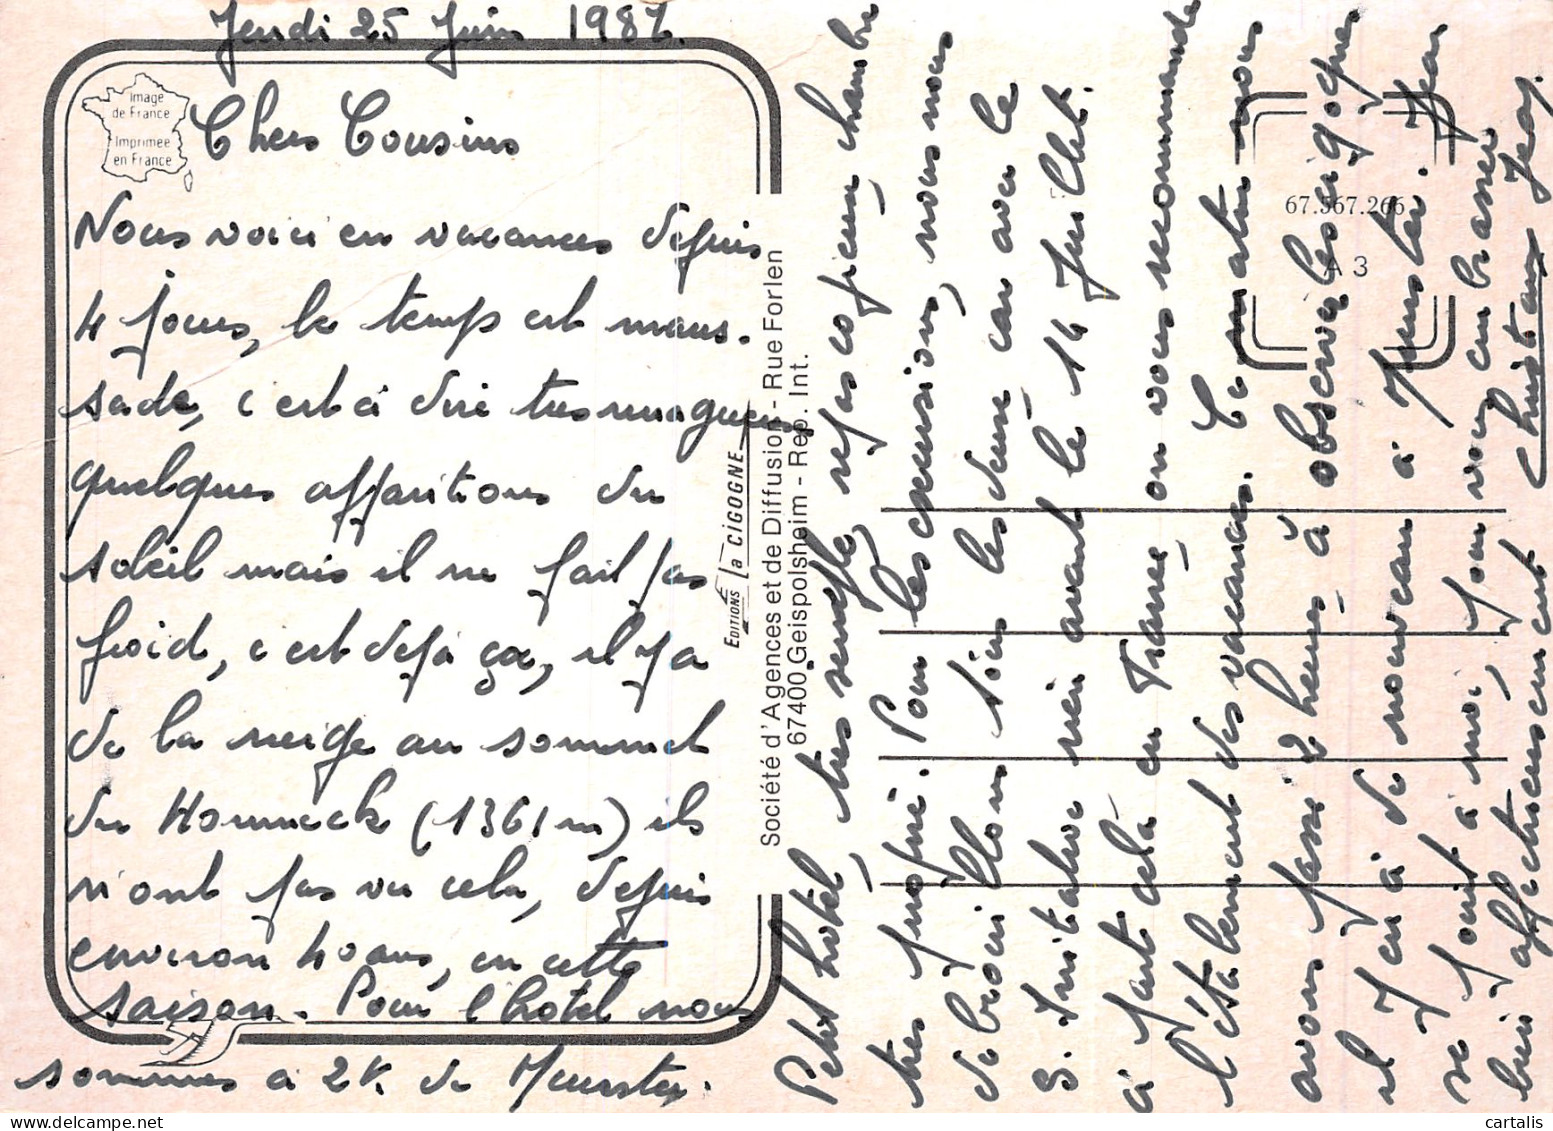 Jeudi 25 Juin 1987.
Image
de France
Imprimée
en France
Chers Cousins
Nous voici en vacances depuis
4 jours, le temps est maus-
sade, c'est à dire très nuageux,
quelques apparitions du
soleil mais il ne fait pas
froid, c'est déjà ça, il y a
de la neige au sommet
du Honneck (1361 m) ils
n'ont pas vu cela, depuis
environ 40 ans, en cette
saison. Pour l'hotel nous
sommes à 2 K. de Munster.
EDITIONS la CIGOGNE
Société d'Agences et de Diffusion - Rue Forlen
67400 Geispolsheim - Rep. Int.
67.567.266
A 3
Petit hôtel, très simple, repas copieux, chambre
très propre. Pour les excursions, nous nous
débrouillons tous les deux car avec le
S. Initiative rien avant le 14 Juillet.
à part cela en France, on vous recommande
l'étalement des vacances. Ce matin nous
avons passé 2 heures à observer les cigognes
il y en a de nouveau à Munster. Jean
se joint à moi, pour vous embrasser
bien affectueusement Christiane Jean.